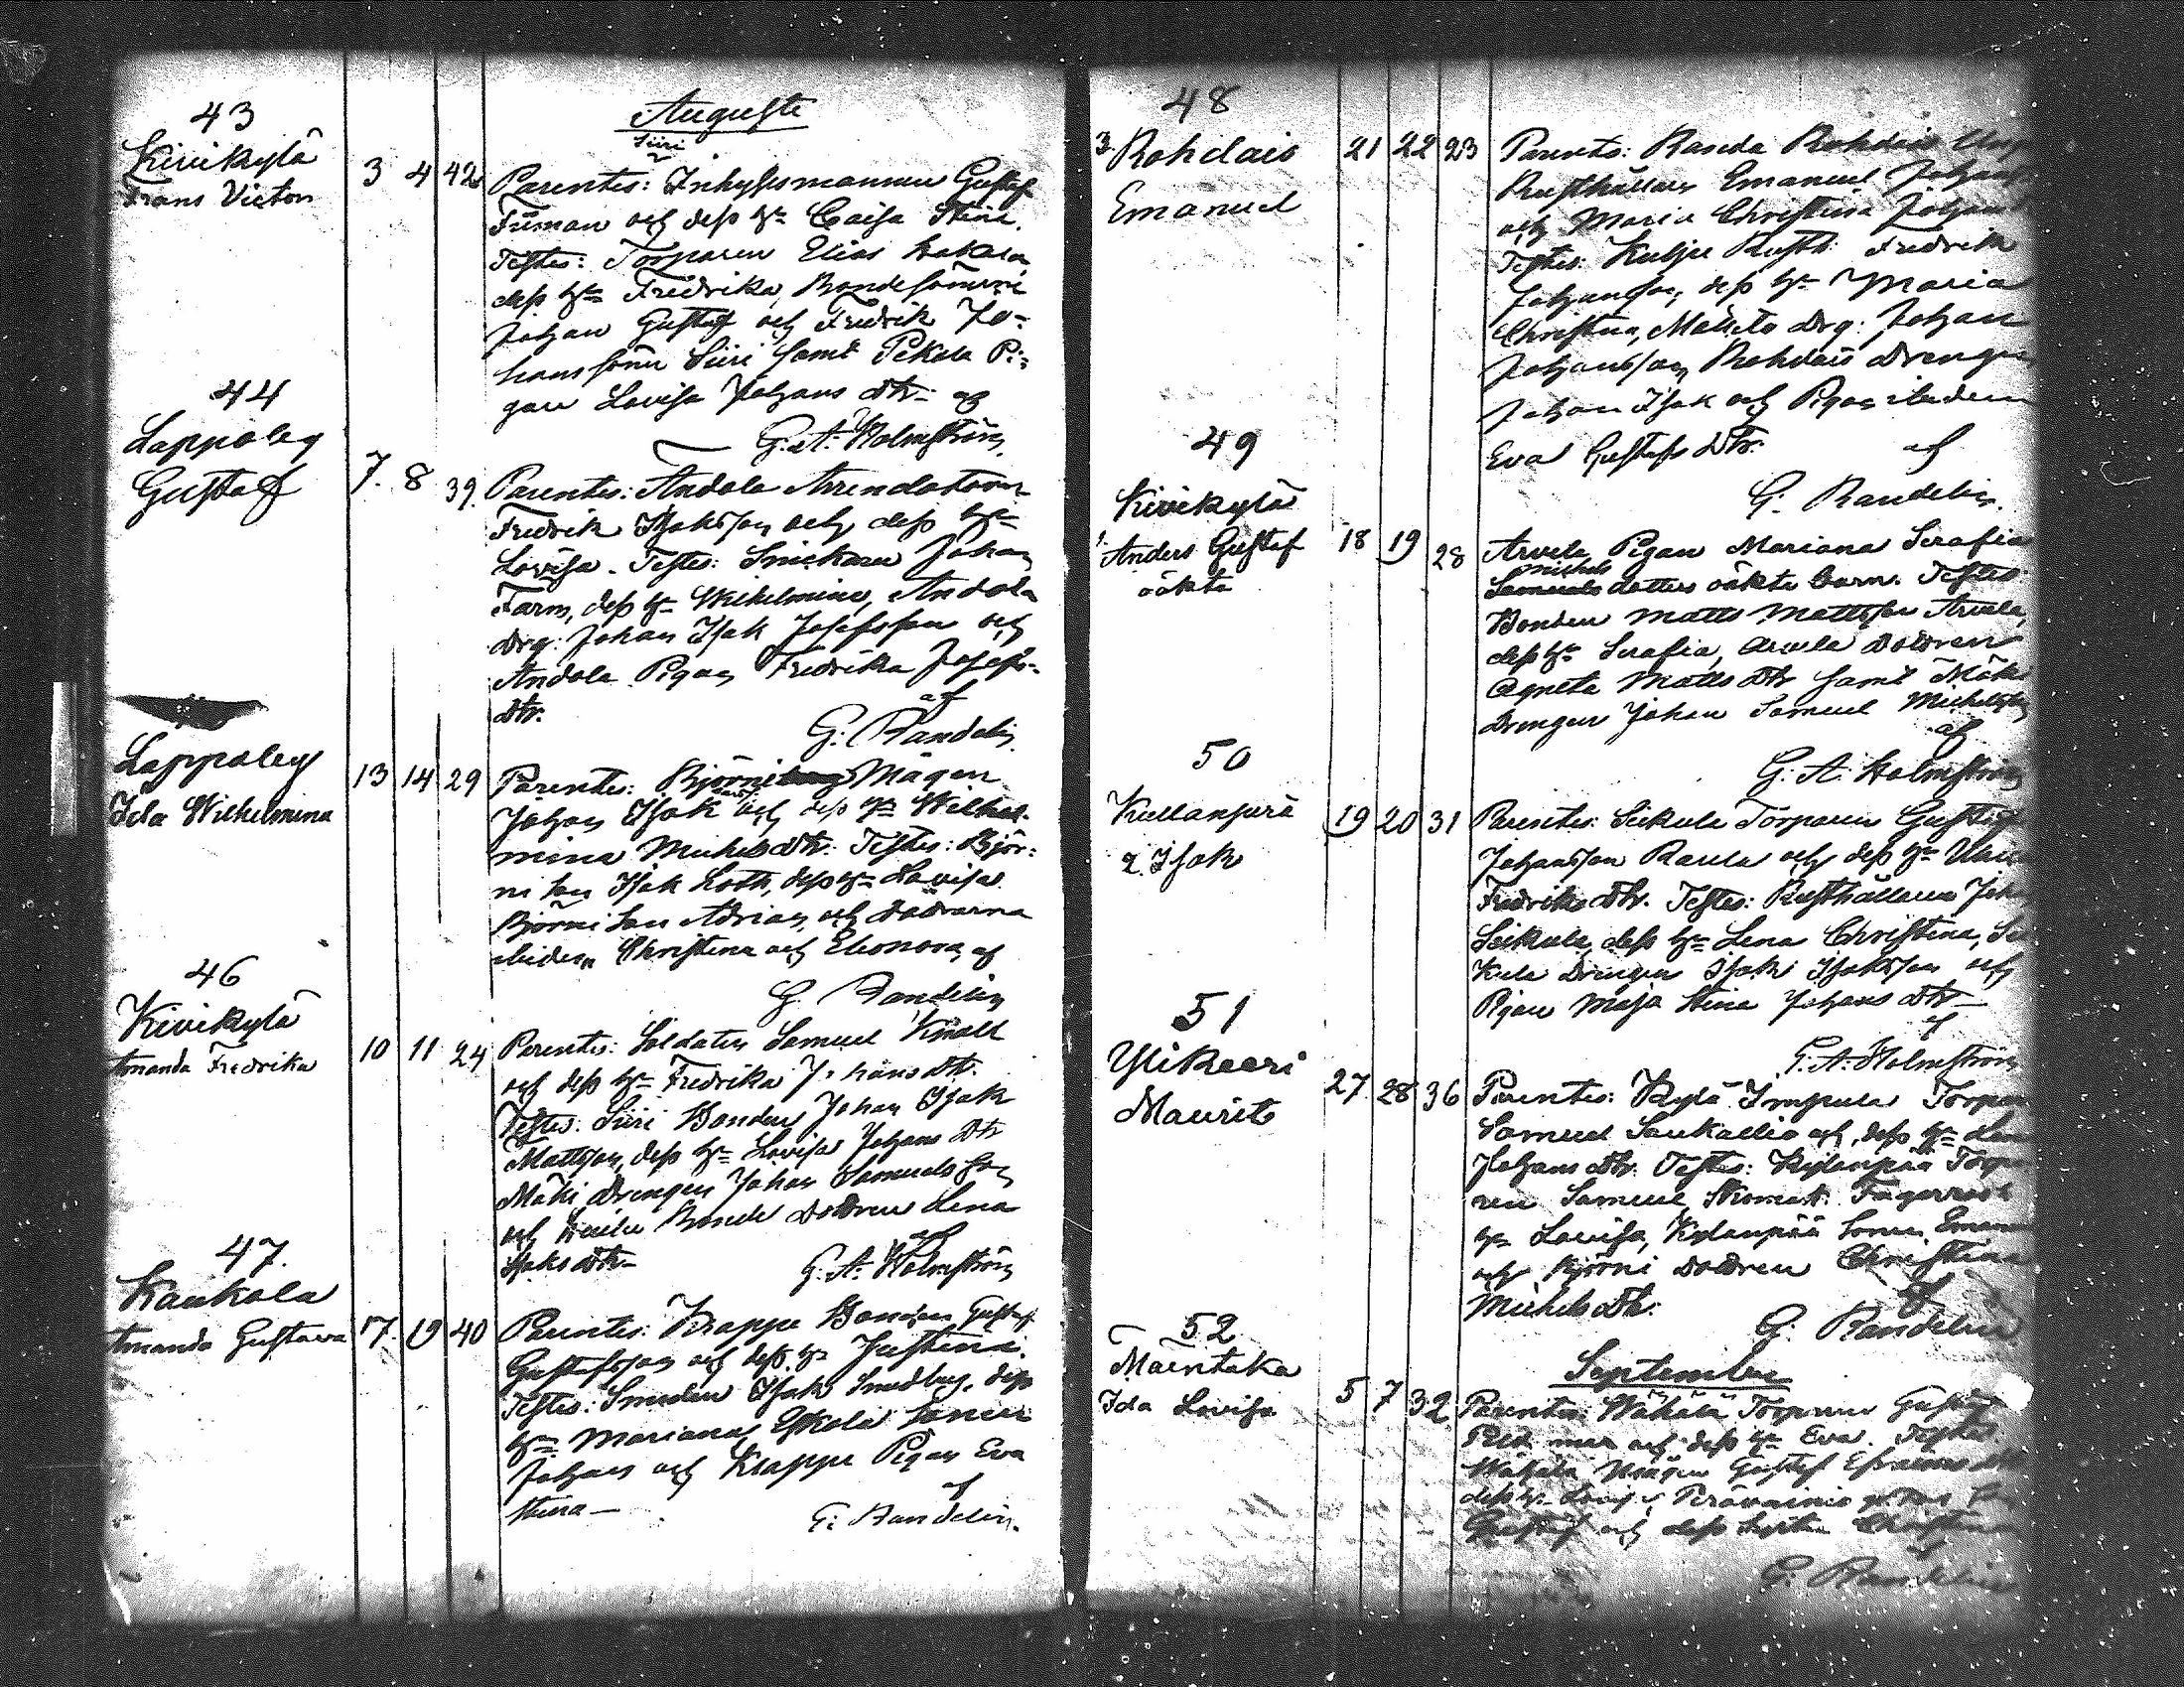 43
Kivikylä
Frans Victor
3 4 42
Auguste
Siiri
Parentes: Inhysesmannen Gustaf
Friman och dess h:u Caisa Stina.
Testes: Torparen Elias
dess h:u Fredrika, Bondesönerne
Johan Gustaf och Fredrik Jo-
hanssöner Siiri samt Pekola Pi-
gan Lovisa Johans dtr. af
G. A. Holmström.
44
Lappoley
Gustaf
7. 8 39.
Parentes: Andola Arrendatorn
Fredrik Isaksson och dess h:u
Lovisa. Testes: Snickaren Johan
Farm, dess h:u Wilhelmina, Andola
Drg: Johan Isak Josefsson och
Andola Pigan Fredrika Josefs-
dtr. af
G: Randelin.
Lappoley
Ida Wilhelmina
13 14 29
Parentes: Björni Mågen
Johan Isak och dess h:u Wilhel-
mina Michels dtr. Testes: Björ-
ni son Isak Loth, dess h:u Lovisa
Björni son Adrian och dottrarna
ibidem Christina och Eleonora af
G. Randelin
46
Kivikylä
Amanda Fredrika
10 11 24
Parentes: Soldaten Samuel Knall
och dess h:u Fredrika Johans dtr.
Testes: Siiri Bonden Johan Isak
Mattsson, dess h:u Lovisa Johans dtr
Mäki Drengen Johan Samuelsson
och Bonde Dottren Lena
Isaks dtr. af
G. A. Holmström
47.
Kaukola
Amanda Gustava
17. 19 40
Parentes: Krappe Bonden Gustaf
Gustafsson och dess h:u Justina.
Testes: Smeden Isak Smedberg, dess
h:u Mariana, Eskola sonen
Johan och Krappe Pigan Eva
Stina — af
G: Randelin.
48
3. Rohdais
Emanuel
21 22 23
Parents: Raseda Rohdais
Rusthållaren Emanuel Johans
och Maria Christina Johans
Testes: Rusth: Fredrik
Johansson, dess h:u Maria
Christina, Drg: Johan
Johansson, Rohdais Drengen
Johan Isak och Pigan ibidem
Eva Gustafs Dtr. af
G. Randelin.
49
Kivikylä
1. Anders Gustaf
oäkta
18 19 28
Arvela Pigan Mariana Serafia
Michels
Samuels dotters oäkta barn. Testes
Bonden Matts Mattsson Arvela,
dess h:u Serafia, Arvela Dottren
Agneta Matts Dtr samt Mäki
Drengen Johan Samuel Michelss.
af
G. A. Holmström
50
Kullanperä
2. Isak
19 20 31
Parentes: Seikula Torparen Gustaf
Johansson Raula och dess h:u
Fredriks Dtr. Testes: Rusthållaren
Seikula, dess h:u Lena Christina, Sei
kula Drengen Isak Isaksson och
Pigan Maja Stina Johans Dtr
af
G. A. Holmström
51
Ylikeeri
Maurits
27. 28 36
Parentes: Kylä Impula Torpar
Samuel Saukallio och dess h:u
Johans dtr. Testes: Kylänpää Torpa
ren Samuel
h:u Lovisa, Kylänpää sonen Eman
och Björni Dottren Christina
Michels Dtr. af
G. Randelin
52
Maentaka
Ida Lovisa
5 7 32
September
Parentes: Wähälä Torparen Gustaf
och dess h:u Eva. Testes
Wähälä Mågen Gustaf
dess h:u
Gustaf och dess Christina
G. Randelin